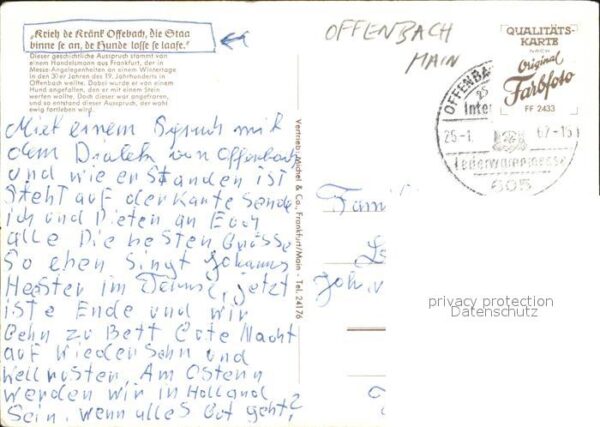 „Krieh de Kränk Offebach, die Staa
binne se an, de Hunde losse se laafe.“
Dieser geschichtliche Ausspruch stammt von
einem Handelsmann aus Frankfurt, der in
Messe-Angelegenheiten an einem Wintertage
in den 30er Jahren des 19. Jahrhunderts in
Offenbach weilte. Dabei wurde er von einem
Hund angefallen, den er mit einem Stein
werfen wollte. Doch dieser war angefroren,
und so entstand dieser Ausspruch, der wohl
ewig fortleben wird.
Miet einem Spruch mit
dem Dialek von Offenbach
und wie er Standen ist
Steht auf der Karte Sende
ich und Dieten an Euch
alle Die besten Grüsse
So eben Singt Johannes
Heester im Danilo, jetzt
iste Ende und wir
Gehn zu Bett Gute Nacht
auf Wiedersehn und
Am Ostern
werden wir in Holland
Sein. wenn alles Gut geht?
Vertrieb: Michel & Co., Frankfurt/Main - Tel. 24176
OFFENBACH
MAIN
QUALITÄTS-
KARTE
NACH
Original
Farbfoto
FF 2433
OFFENBA
Inter
25-1. 67-15
Lederwarenmesse
605
Famil
Joh. v
privacy protection
Datenschutz